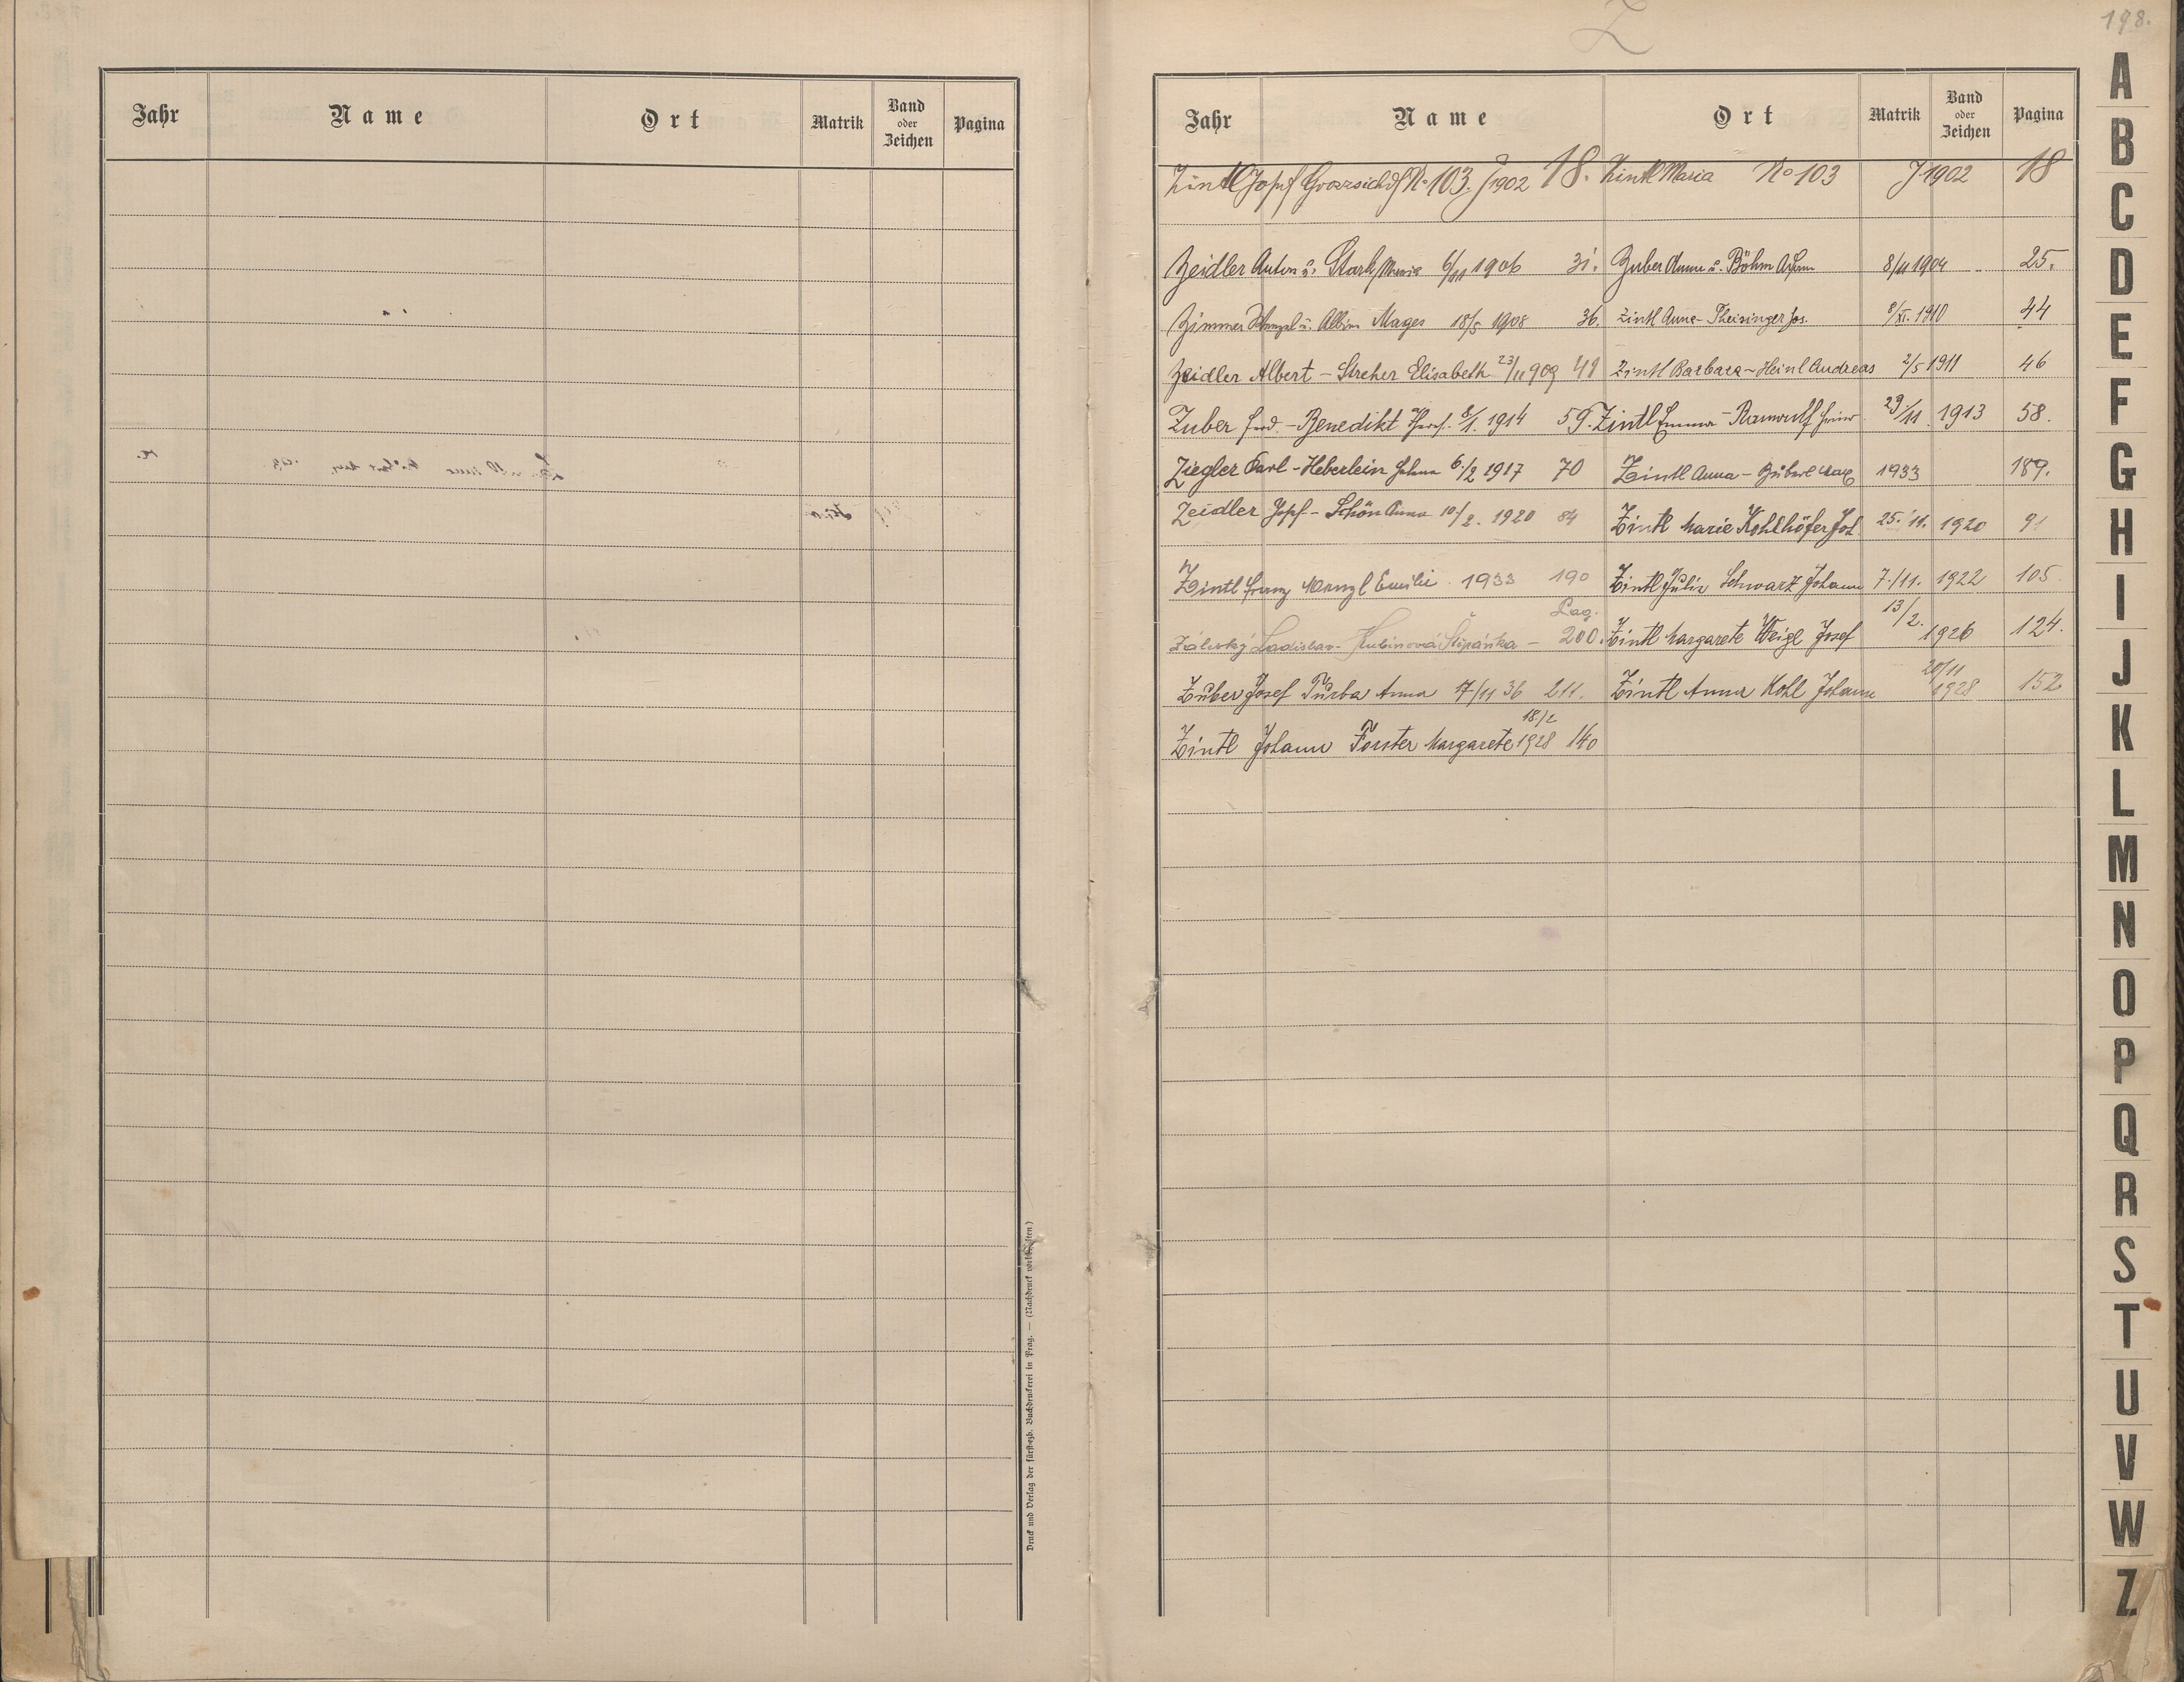 Jahr Name Ort Matrik Band oder Zeichen Pagina
Druck und Verlag der fürsterzb. Buchdruckerei in Prag. — (Nachdruck verboten.)
Z
198.
Jahr Name Ort Matrik Band oder Zeichen Pagina
Zintl Josef No 103. J 1902 18. Zintl Maria No 103 J 1902 18
Zeidler Anton u. Stark Maria 6/11 1906 31. Zuber Anna u. Böhm 8/11 1904 25.
Zimmer Wenzel u. Albine Mages 18/5 1908 36. Zintl Anna - Theisinger Jos. 8/XI. 1910 44
Zeidler Albert - Streher Elisabeth 23/11 909 41 Zintl Barbara - Heinl Andreas 2/5 1911 46
Zuber Ferd. - Benedikt Theres. 8/1. 1914 59. Zintl Emma - 29/11 1913 58.
Ziegler Karl - Heberlein 6./2 1917 70 Zintl Anna - 1933 189.
Zeidler Josef - Schön Anna 10/2. 1920 84 Zintl Marie Kohlhöfer Joh. 25./11. 1920 91
Zintl Franz Wenzl Emilie 1933 190 Zintl Julie Schwarz Johann 7./11. 1922 105.
Záleský Ladislav - Kubinová Štěpánka - Pag. 200. Zintl Margarete Weigl Josef 13/2. 1926 124.
Zuber Josef Turba Anna 17/11 36 211. Zintl Anna Kohl Johann 20/11 1928 152
Zintl Johann Forster Margarete 18./2 1928 140
A
B
C
D
E
F
G
H
I
J
K
L
M
N
O
P
Q
R
S
T
U
V
W
Z